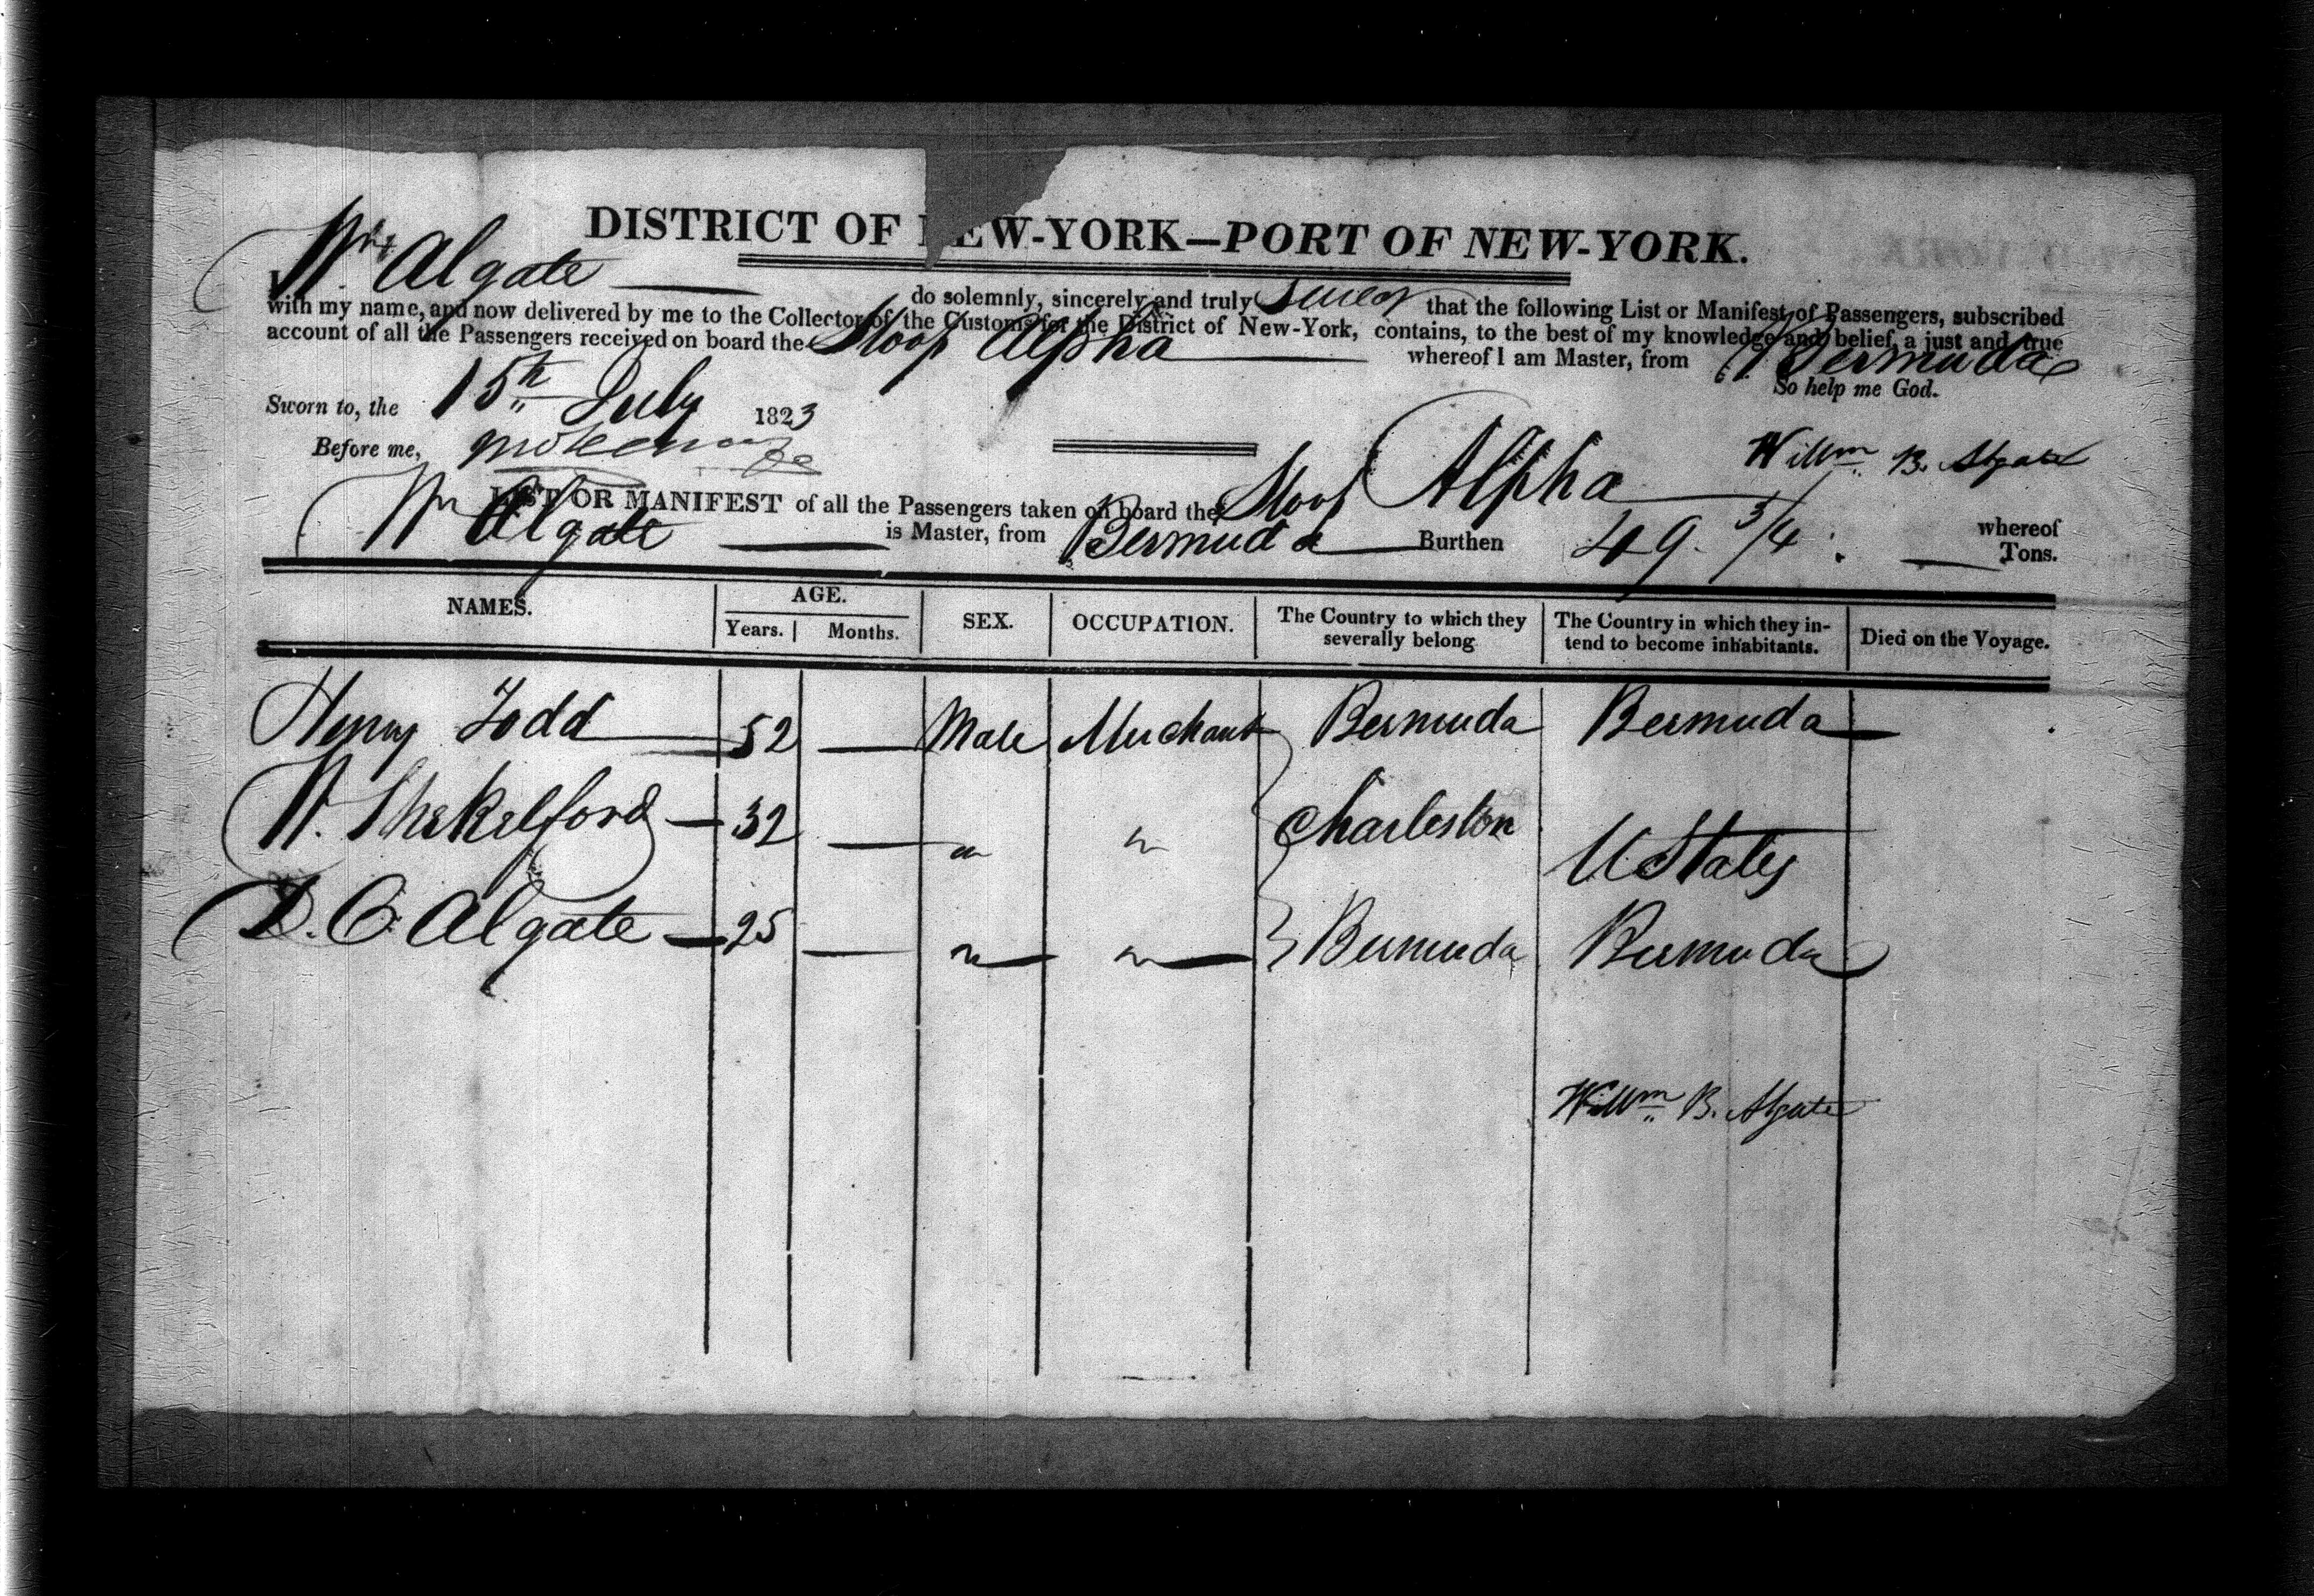 DISTRICT OF NEW-YORK—PORT OF NEW-YORK.
I, Wm Algate do solemnly, sincerely and truly Swear that the following List or Manifest of Passengers, subscribed
with my name, and now delivered by me to the Collector of the Customs for the District of New-York, contains, to the best of my knowledge and belief, a just and true
account of all the Passengers received on board the Sloop Alpha whereof I am Master, from Bermuda
So help me God.
Sworn to, the 15th July 1823
Before me,
Willm B. Algate
LIST OR MANIFEST of all the Passengers taken on board the Sloop Alpha whereof
Wm Algate is Master, from Bermuda Burthen 49 3/4 Tons.
NAMES. AGE. SEX. OCCUPATION. The Country to which they severally belong The Country in which they intend to become inhabitants. Died on the Voyage.
Years. Months.
Henry Todd 52 — Male Merchant Bermuda Bermuda
W. Shekelford 32 — " " Charleston U States
D. C. Algate 25 — " " Bermuda Bermuda
Willm B. Algate